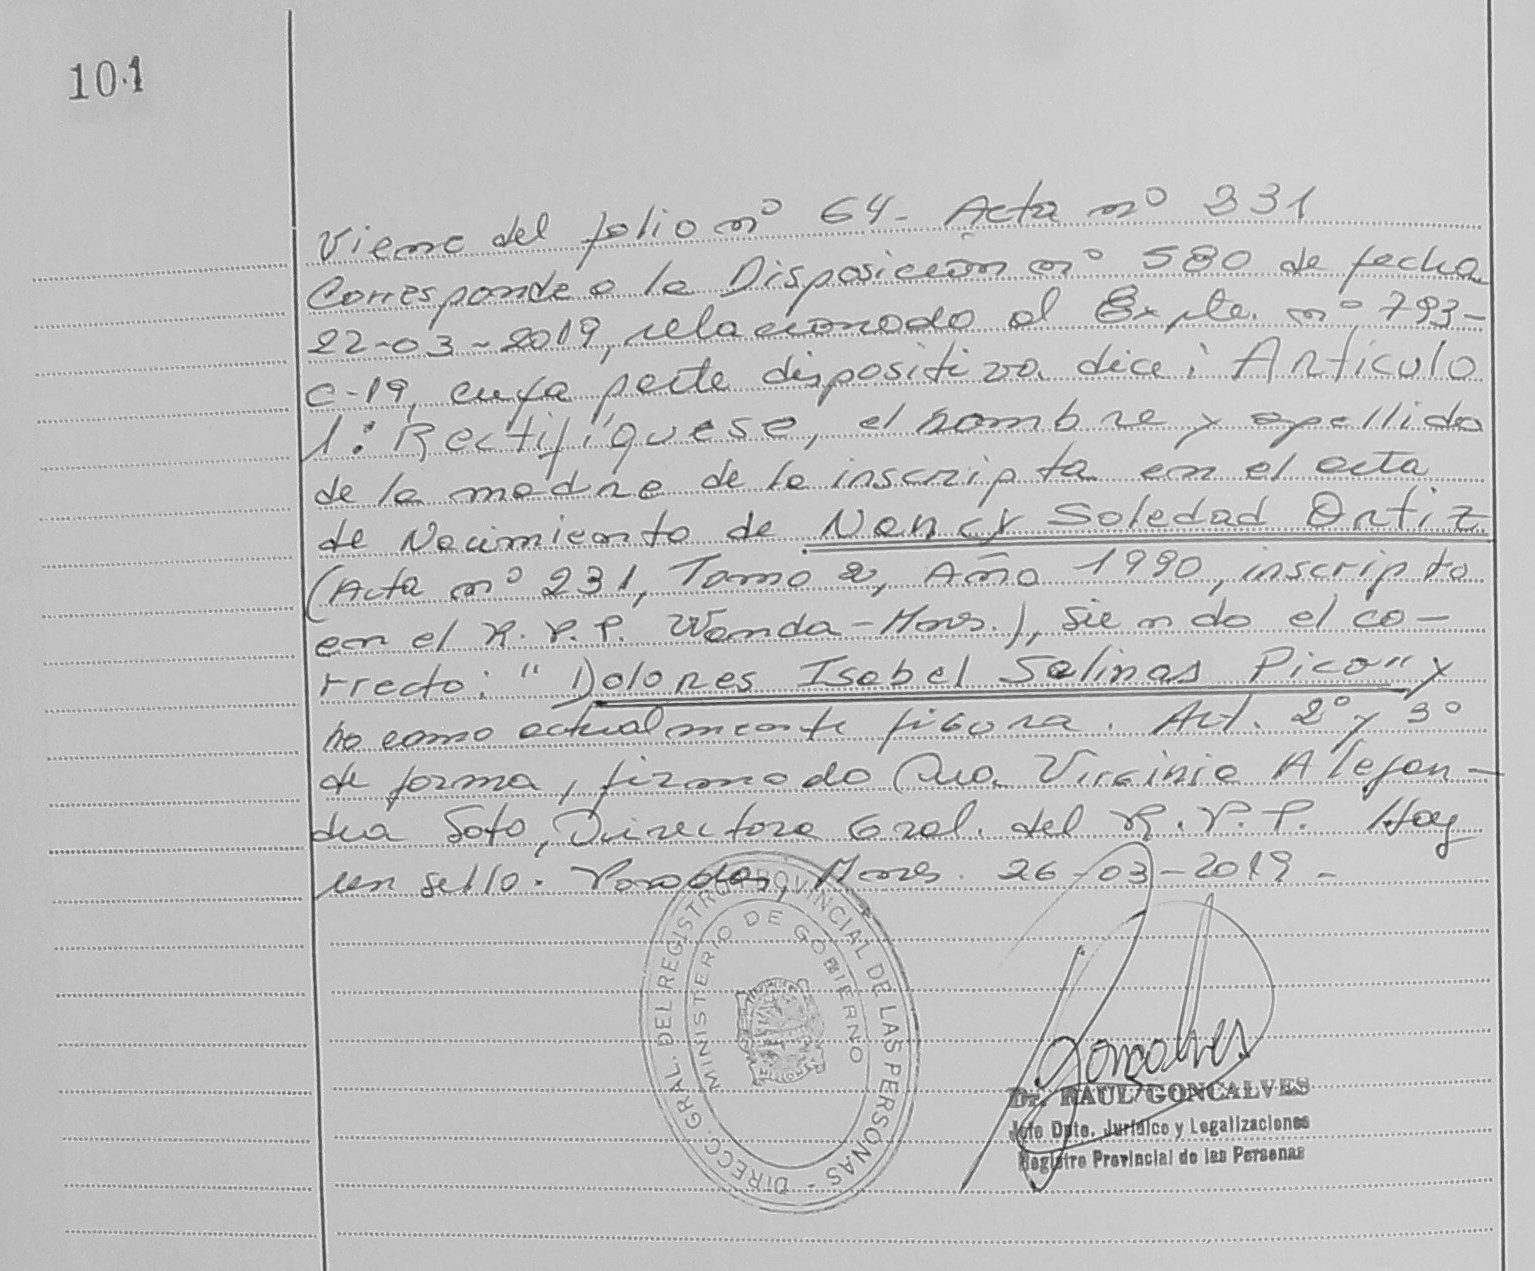 101
Viene del folio nº 64- Acta nº 231
Corresponde a la Disposición nº 580 de fecha
22-03-2019, relacionado al Expte. nº 793-
C-19, cuya parte dispositiva dice: Artículo
1: Rectifíquese, el nombre y apellido
de la madre de la inscripta en el acta
de Nacimiento de Nancy Soledad Ortiz
(Acta nº 231, Tomo 2, Año 1990, inscripta
en el R.P.P. Wanda-Mnes.), siendo el co-
rrecto: "Dolores Isabel Salinas Pico" y
no como actualmente figura. Art. 2º y 3º
de forma, firmado Dra. Virginia Alejan-
dra Soto, Directora Gral. del R.P.P. Hay
un sello. Posadas, Mnes. 26-03-2019-
DIRECC. GRAL. DEL REGISTRO PROVINCIAL DE LAS PERSONAS -
MINISTERIO DE GOBIERNO
Goncalves
Dr. RAUL GONCALVES
Jefe Dpto. Jurídico y Legalizaciones
Registro Provincial de las Personas